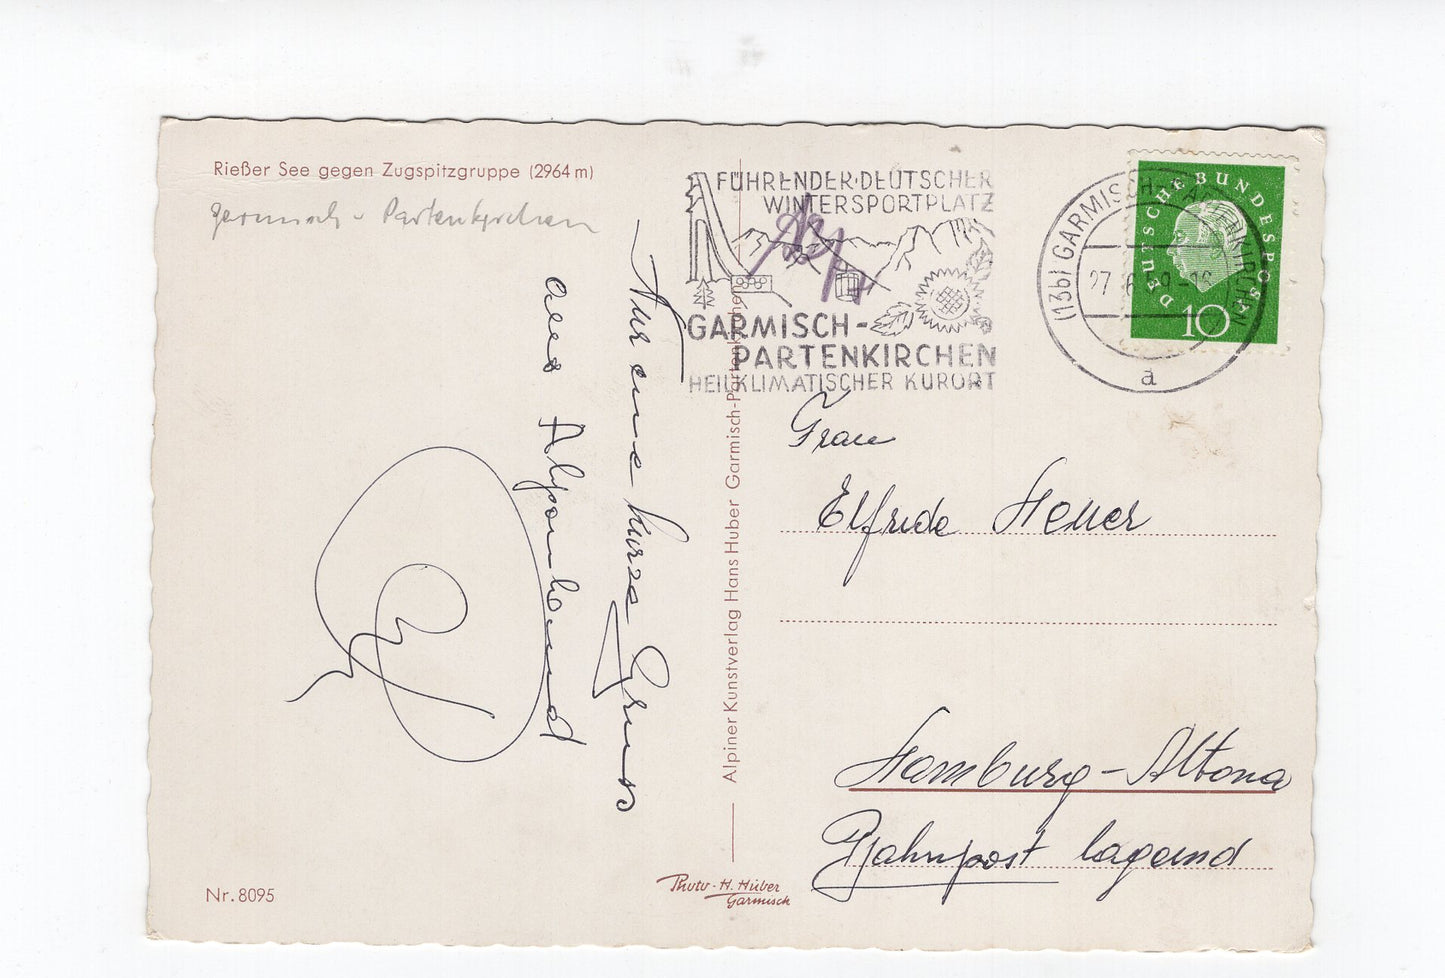 Rießer See gegen Zugspitzgruppe (2964 m)
Garmisch-Partenkirchen
Nur eine kurze Gruss
aus Alpenland
Nr. 8095
Alpiner Kunstverlag Hans Huber Garmisch-Partenkirchen
Photo-H. Huber
Garmisch
FÜHRENDER·DEUTSCHER
WINTERSPORTPLATZ
GARMISCH-
PARTENKIRCHEN
HEILKLIMATISCHER KURORT
(13b) GARMISCH-PARTENKIRCHEN
a
DEUTSCHE BUNDESPOST
10
Frau
Elfride
Hamburg-Altona
Bahnpost lagernd